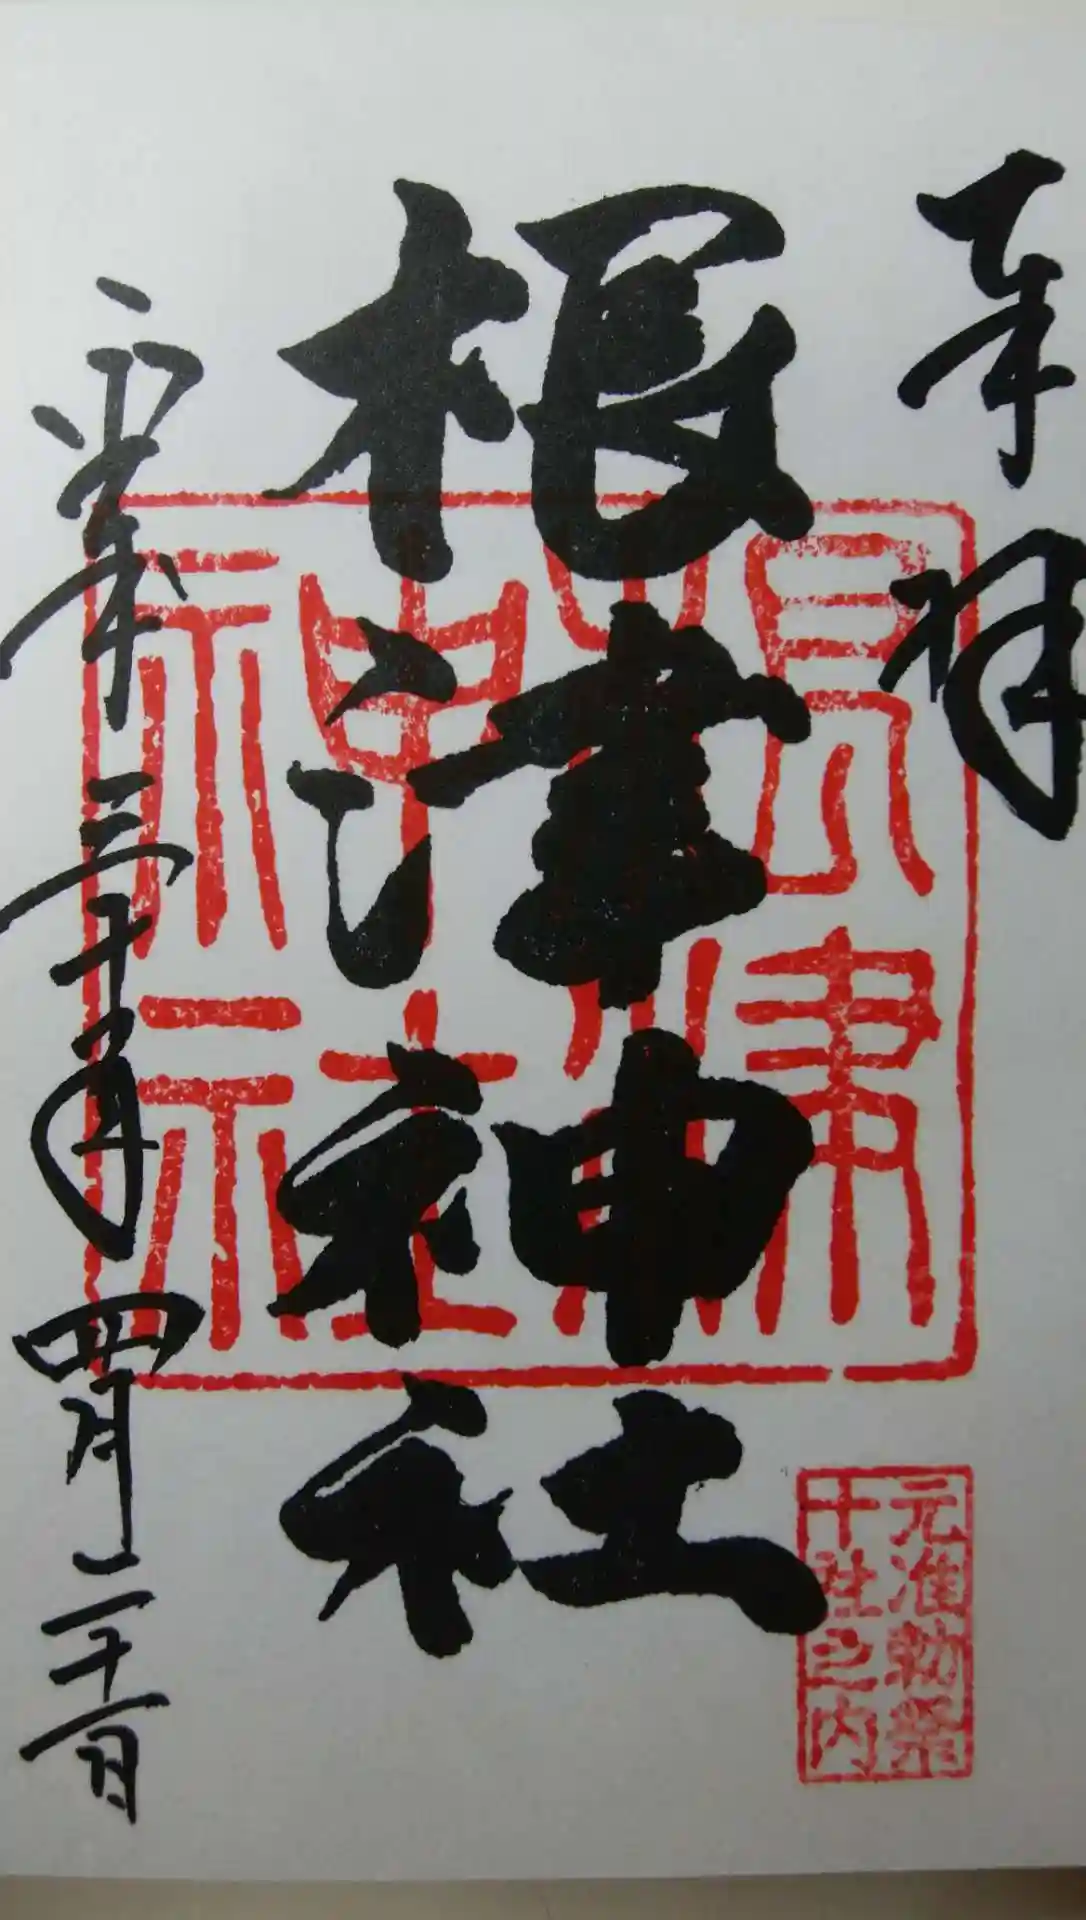 奉拝
根津神社
根津神社
元准勅祭
十社之内
平成三十年四月二十一日